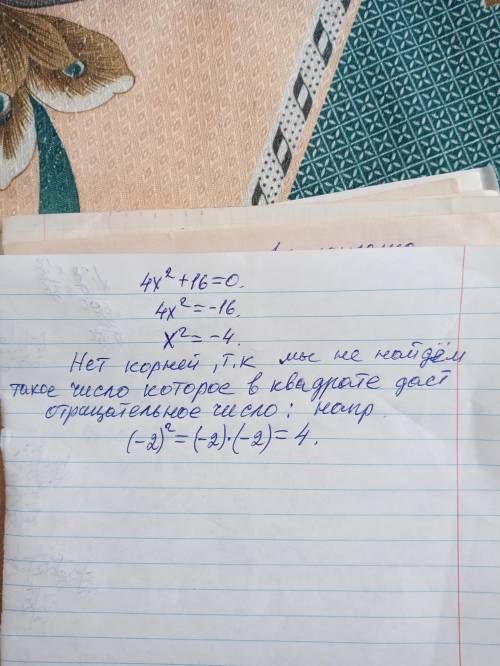 4x²+16=0.
4x²=-16.
x²=-4.
Нет корней, т.к мы не найдём
такое число которое в квадрате даст
отрицательное число; напр.
(-2)²=(-2)·(-2)=4.